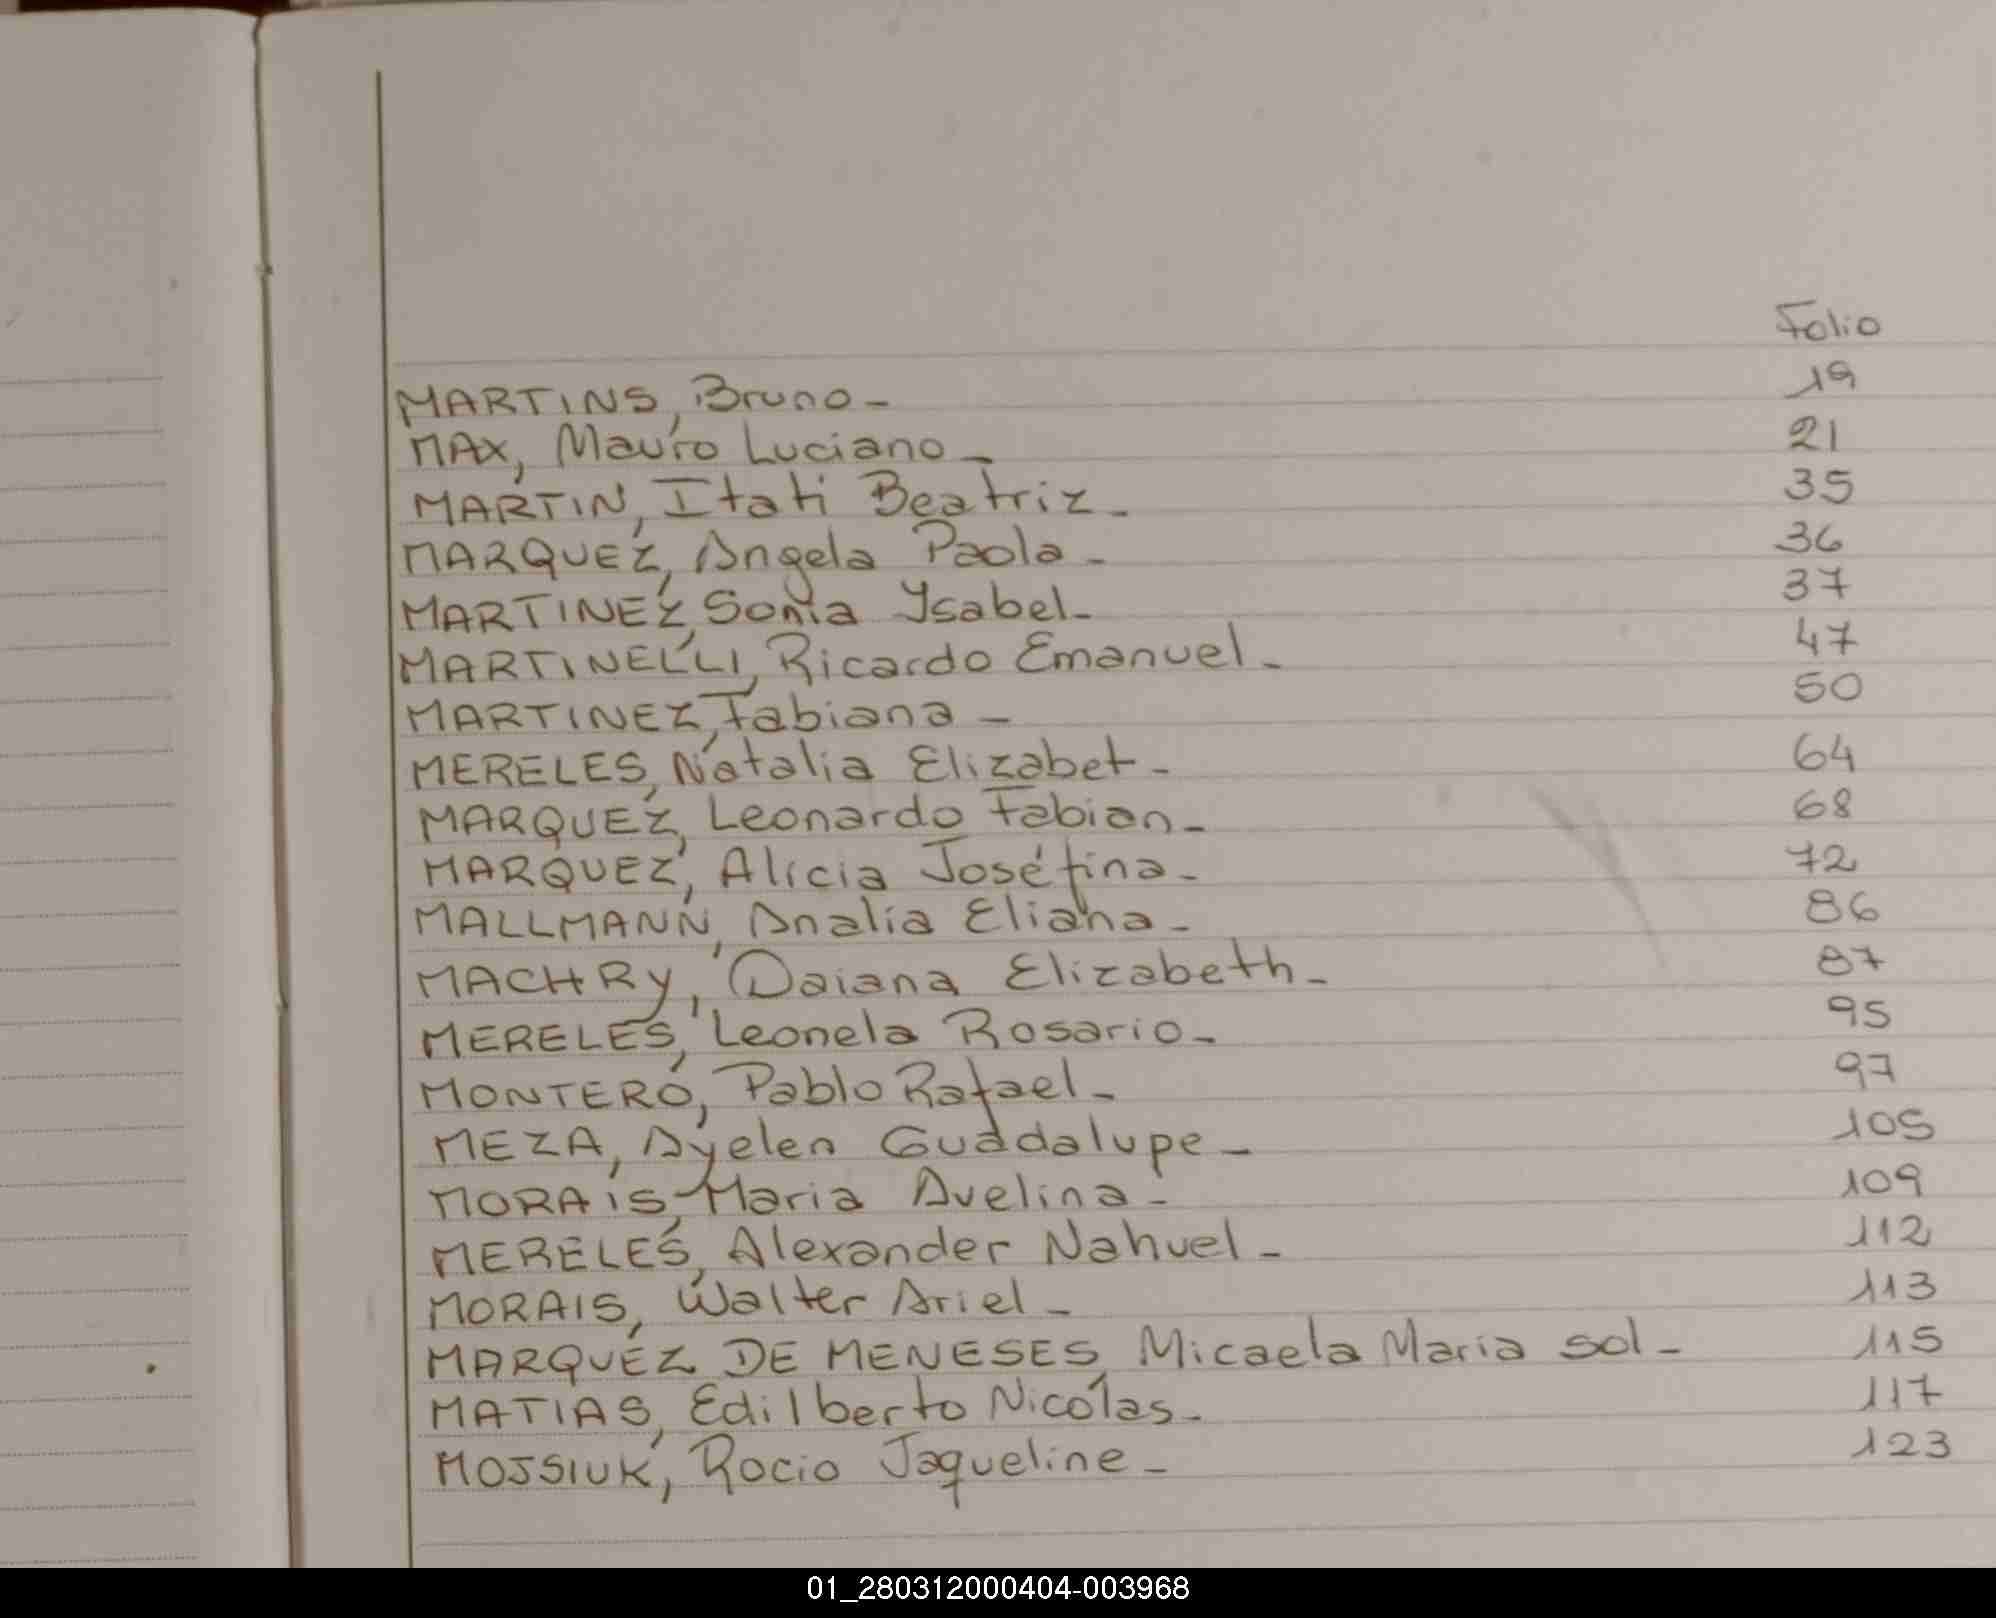 Folio
MARTINS, Bruno - 19
MAX, Mauro Luciano - 21
MARTIN, Itati Beatriz - 35
MARQUEZ, Angela Paola - 36
MARTINEZ, Sonia Ysabel - 37
MARTINELLI, Ricardo Emanuel - 47
MARTINEZ, Fabiana - 50
MERELES, Natalia Elizabet - 64
MARQUEZ, Leonardo Fabian - 68
MARQUEZ, Alicia Josefina - 72
MALLMANN, Analia Eliana - 86
MACHRY, Daiana Elizabeth - 87
MERELES, Leonela Rosario - 95
MONTERO, Pablo Rafael - 97
MEZA, Ayelen Guadalupe - 105
MORAIS, Maria Avelina - 109
MERELES, Alexander Nahuel - 112
MORAIS, Walter Ariel - 113
MARQUEZ DE MENESES, Micaela Maria sol - 115
MATIAS, Edilberto Nicolas - 117
MOJSIUK, Rocio Jaqueline - 123
01_280312000404-003968